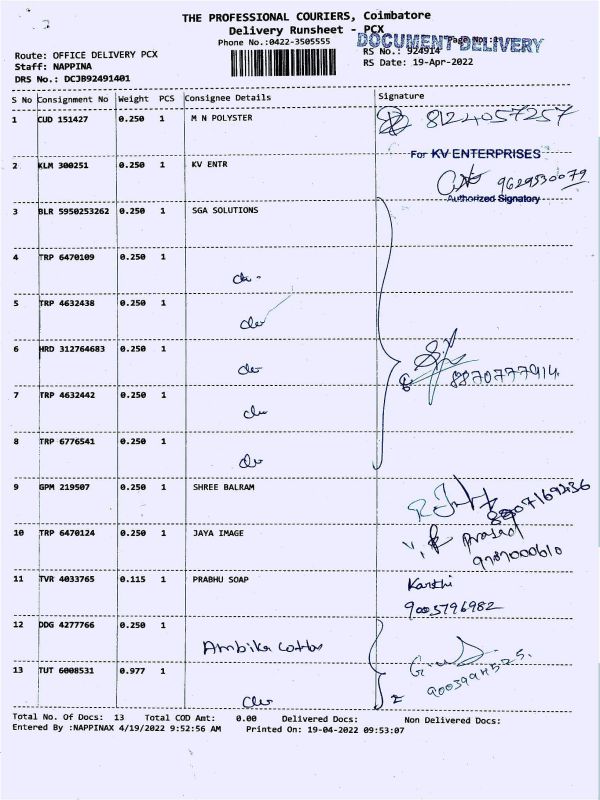 THE PROFESSIONAL COURIERS, Coimbatore
Delivery Runsheet - PCX
Phone No.:0422-3505555
DOCUMENT DELIVERY
Route: OFFICE DELIVERY PCX
RS No.: 924914
Staff: NAPPINA
RS Date: 19-Apr-2022
DRS No.: DCJB92491401
S No Consignment No Weight PCS Consignee Details Signature
1 CUD 151427 0.250 1 M N POLYSTER 8124057257
For KV ENTERPRISES
2 KLM 300251 0.250 1 KV ENTR 9629530079
Authorized Signatory
3 BLR 5950253262 0.250 1 SGA SOLUTIONS
4 TRP 6470109 0.250 1
5 TRP 4632438 0.250 1
6 HRD 312764683 0.250 1
7 TRP 4632442 0.250 1
8 TRP 6776541 0.250 1
9 GPM 219507 0.250 1 SHREE BALRAM
10 TRP 6470124 0.250 1 JAYA IMAGE
Prasad
9787000610
11 TVR 4033765 0.115 1 PRABHU SOAP Karthi
9003796982
12 DDG 4277766 0.250 1
Ambika
13 TUT 6008531 0.977 1
Total No. Of Docs: 13 Total COD Amt: 0.00 Delivered Docs: Non Delivered Docs:
Entered By :NAPPINAX 4/19/2022 9:52:56 AM Printed On: 19-04-2022 09:53:07